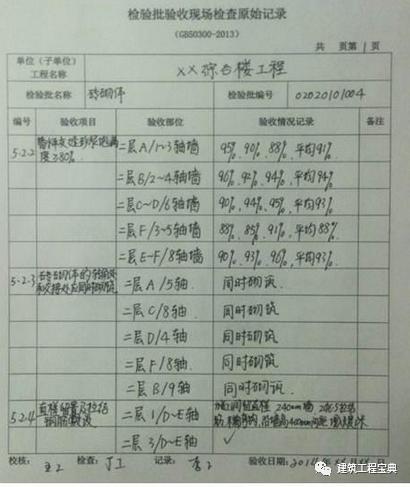 检验批验收现场检查原始记录
(GB50300-2013)
共 页第1页
单位（子单位）工程名称 ××综合楼工程
检验批名称 砖砌体 检验批编号 02020101004
编号 验收部位 验收情况记录 备注
5.2.2 度≥80%. 二层A/1~3轴墙 95%、90%、88%，平均91%
二层B/2~4轴墙 96%、92%、94%，平均94%
二层C~D/6轴墙 90%、94%、95%，平均93%
二层F/3~5轴墙 88%、85%、91%，平均88%
二层E~F/8轴墙 90%、93%、96%，平均93%
5.2.3 砖砌体的转角处和交接处应同时砌筑 二层A/5轴 同时砌筑
二层C/8轴 同时砌筑
二层D/4轴 同时砌筑
二层F/8轴 同时砌筑
二层B/9轴 同时砌筑
5.2.4 直槎留置及拉结钢筋敷设 二层1/D~E轴 240mm墙
二层3/D~E轴 ✓
校核： 王2 检查： 丁工 记录： 李2 验收日期：
建筑工程宝典